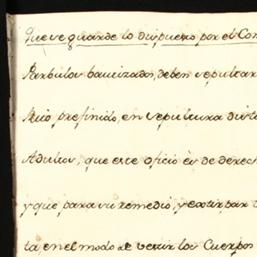 Que se guarde lo dispuesto por el Con
Parbulos bautizados, deben sepultar
prefinido, en sepultura
Adultos, que este oficio és de derech
y que para su remedio, y evitar
ta, en el modo de vestir los Cuerpos